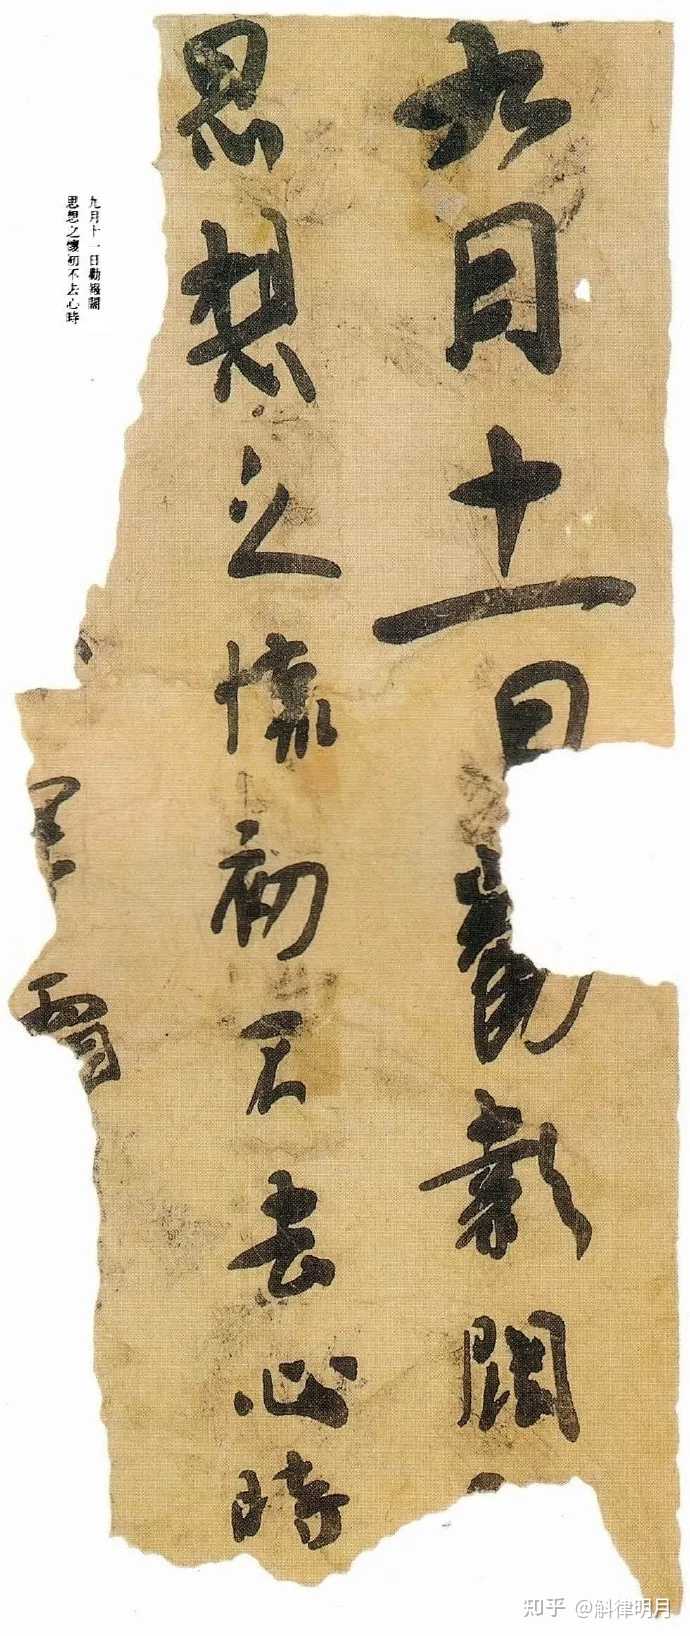 九月十一日勸發闊
思想之懷初不去心時
九月十一日勸
思想之懷初不去心時
知乎 @斛律明月